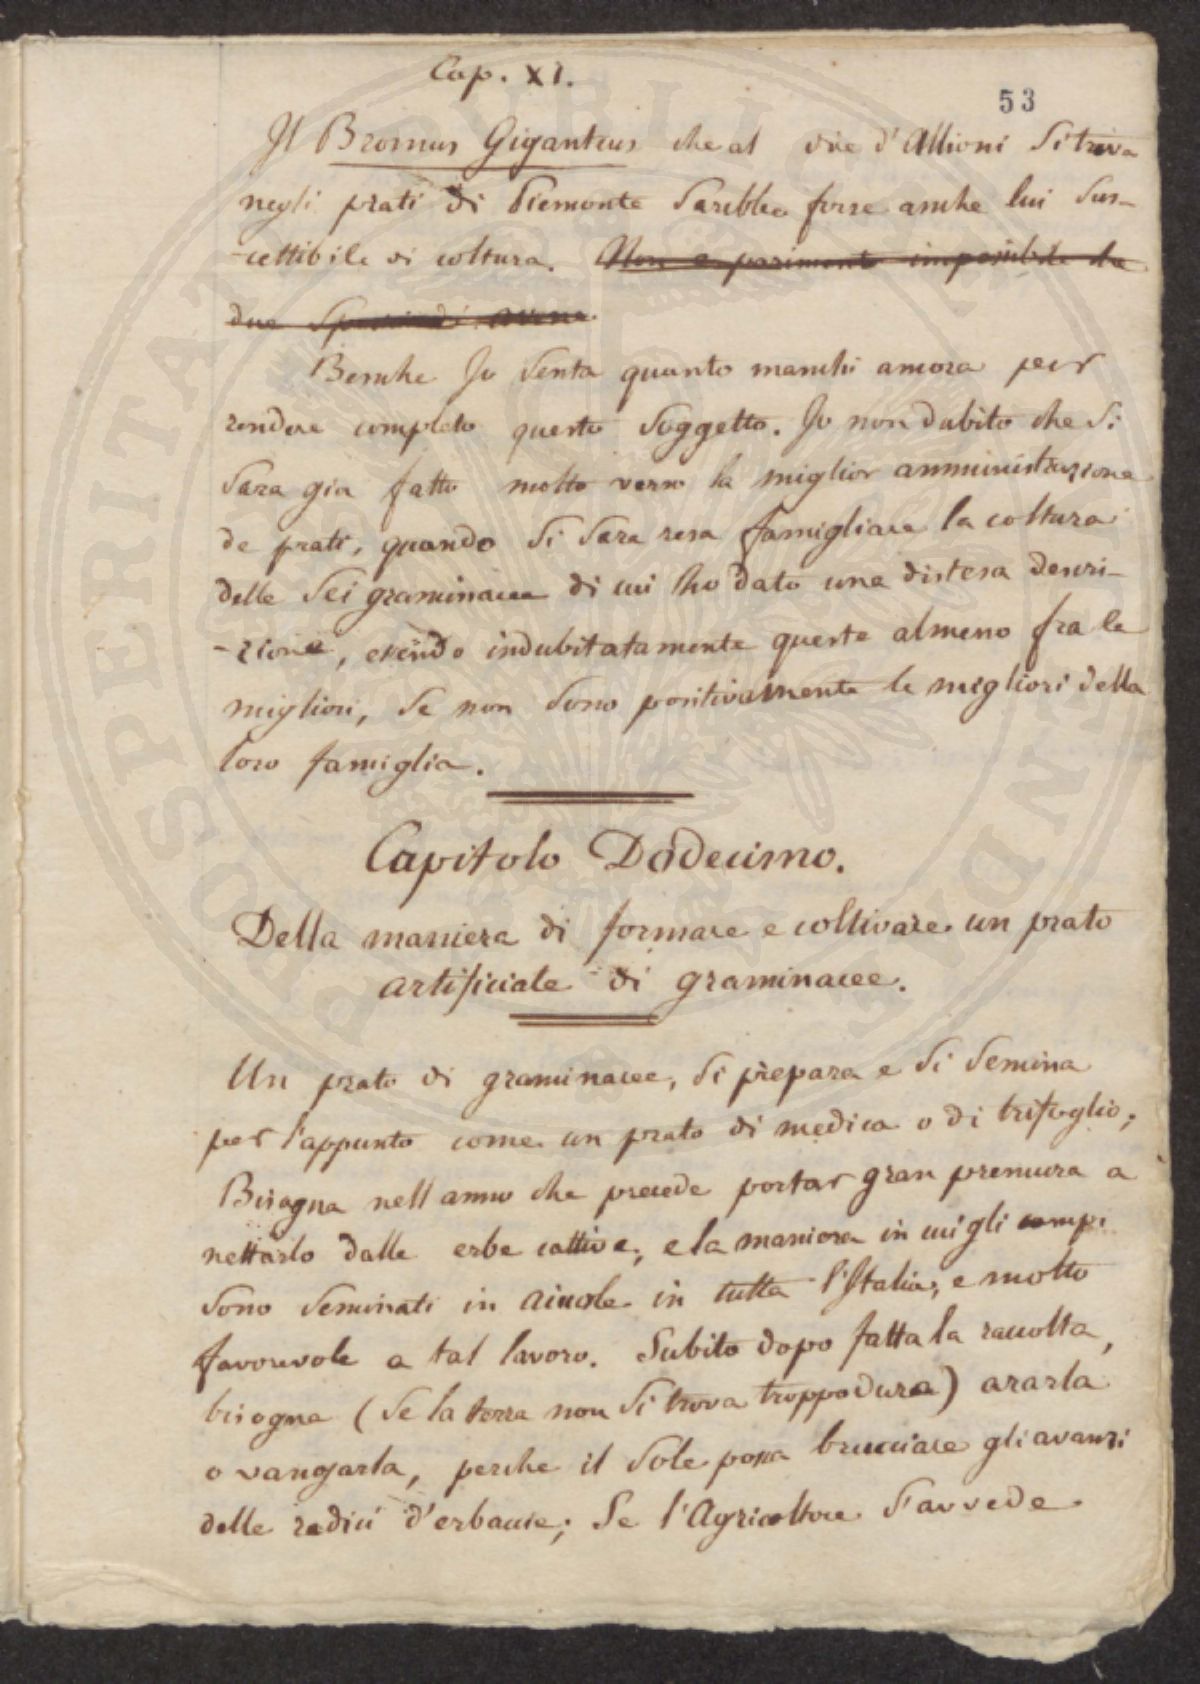 Cap. XI.
53
Il Bromus Giganteus che al dire d'Allioni si trova
negli prati di Piemonte sarebbe forse anche lui sus-
-cettibile di coltura. Non e parimente impossibile che
due specie di avena.
Benche Io senta quanto manchi ancora per
rendere completo questo soggetto. Io non dubito che si
sara gia fatto molto verso la miglior amministrazione
de prati, quando si sara resa famigliare la coltura
delle sei graminacee di cui ho dato una distesa descri-
-zione, essendo indubitatamente queste almeno fra le
migliori, se non sono positivamente le migliori della
loro famiglia.
Capitolo Dodecimo.
Della maniera di formare e coltivare un prato
artificiale di graminacee.
Un prato di graminacee, si prepara e si semina
per l'appunto come un prato di medica o di trifoglio;
Bisogna nell anno che precede portar gran premura a
nettarlo dalle erbe cattive; e la maniera in cui gli campi
sono seminati in aiuole in tutta l'Italia; e molto
favorevole a tal lavoro. Subito dopo fatta la raccolta,
bisogna (se la terra non si trova troppo dura) ararla
o vangarla, perche il sole possa bruciare gli avanzi
delle radici d'erbacie; Se l'Agricoltore s'avvede
PROSPERITATI PUBLICAE AUGENDAE